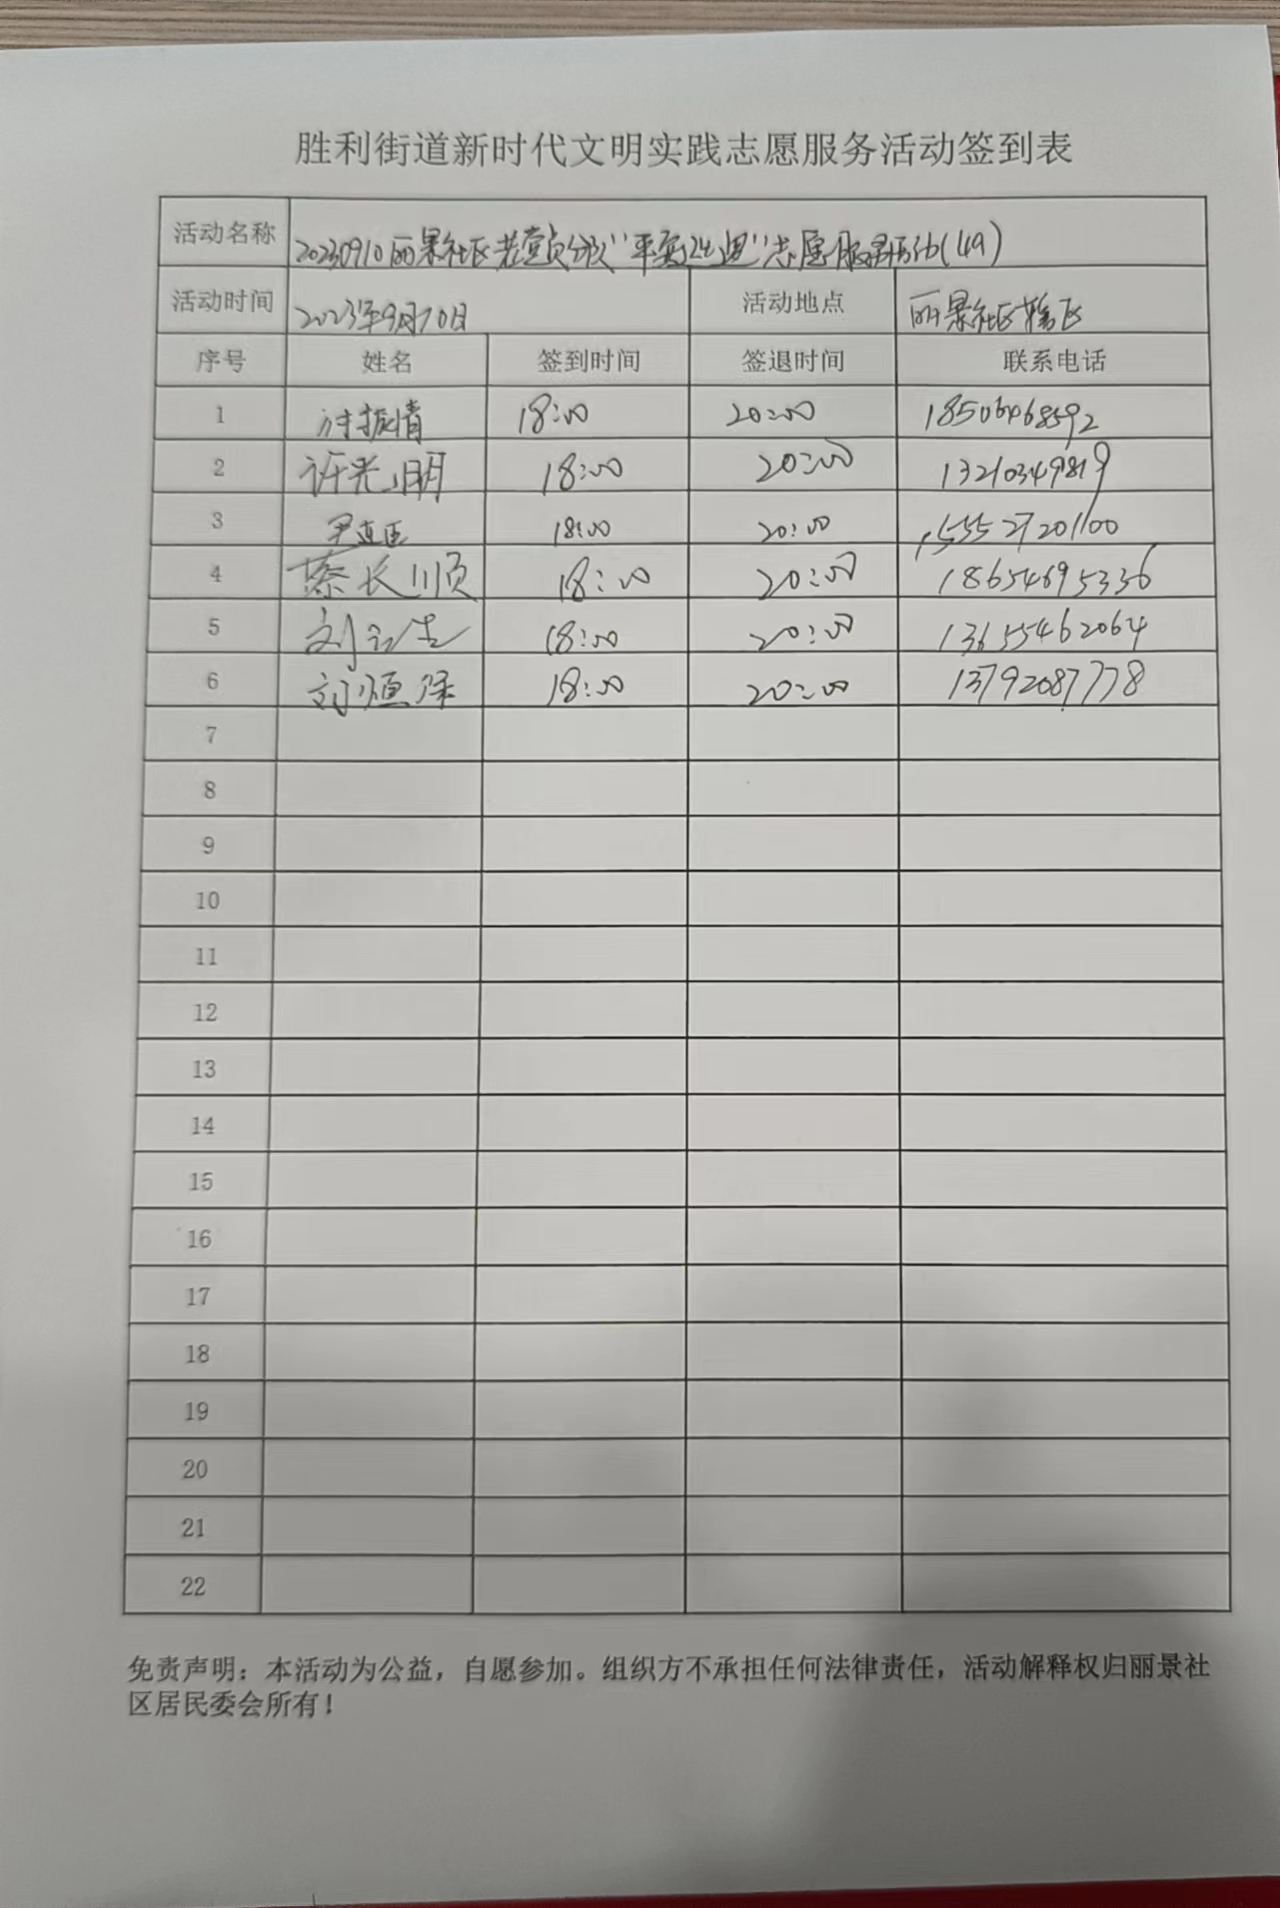 胜利街道新时代文明实践志愿服务活动签到表
活动名称 20230910丽景社区老党员分队"平安巡逻"志愿服务活动(49)
活动时间 2023年9月10日 活动地点 丽景社区辖区
序号 姓名 签到时间 签退时间 联系电话
1 付振清 18:00 20:00 18506468592
2 许光明 18:00 20:00 13210349819
3 尹连臣 18:00 20:00 15552720100
4 蔡长顺 18:00 20:00 18654695336
5 刘云生 18:00 20:00 13655462064
6 刘恒禄 18:00 20:00 13792087778
7
8
9
10
11
12
13
14
15
16
17
18
19
20
21
22
免责声明：本活动为公益，自愿参加。组织方不承担任何法律责任，活动解释权归丽景社
区居民委会所有！